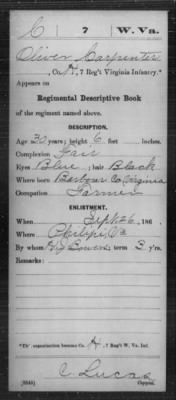 C | 7 | W. Va.
Oliver Carpenter
, Co. H, 7 Reg't Virginia Infantry.*
Appears on
Regimental Descriptive Book
of the regiment named above.
DESCRIPTION.
Age 30 years; height 6 feet inches.
Complexion Fair
Eyes Blue; hair Black
Where born Barbour Co, Virginia
Occupation Farmer
ENLISTMENT.
When Sept. 26, 186 .
Where Philipi, Va
By whom Bowen; term 3 y'rs.
Remarks:
*This organization became Co. H, 7 Reg't W. Va. Inf.
C. Lucas
Copyist.